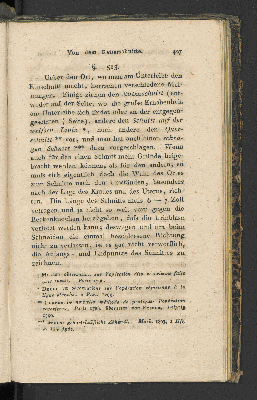 Von dem Kaiserschnitte. 407
§. 523.
Ueber den Ort, wo man am Unterleibe den
Einschnitt macht, herrschen verschiedene Mei-
nungen. Einige ziehen den Lateralschnitt (ent-
weder auf der Seite, wo die große Erhabenheit
am Unterleibe sich findet oder an der entgegen-
gesetzten Seite), andere den Schnitt auf der
weißen Linie *, noch andere den Quer-
schnitt ** vor, und man hat auch einen schrä-
gen Schnitt *** dazu vorgeschlagen. Wenn
auch für den einen Schnitt mehr Gründe beige-
bracht werden können, als für den andern, so
muß sich eigentlich doch die Wahl des Ortes
zum Schnitte nach den Umständen, besonders
nach der Lage des Kindes und des Uterus, rich-
ten. Die Länge des Schnitts muß 6 — 7 Zoll
betragen und ja nicht so weit vorn gegen die
Beckenknochen herabgehen, daß die Urinblase
verletzt werden kann; deswegen und um beim
Schneiden die einmal beschlossene Richtung
nicht zu verlassen, ist es gar nicht verwerflich,
die Anfangs- und Endpunkte des Schnittes zu
zeichnen.
sur l'opération
Paris
sur l'opération césarienne à la
Paris
méthode de pratiquer l'opération
Paris
Leipzig